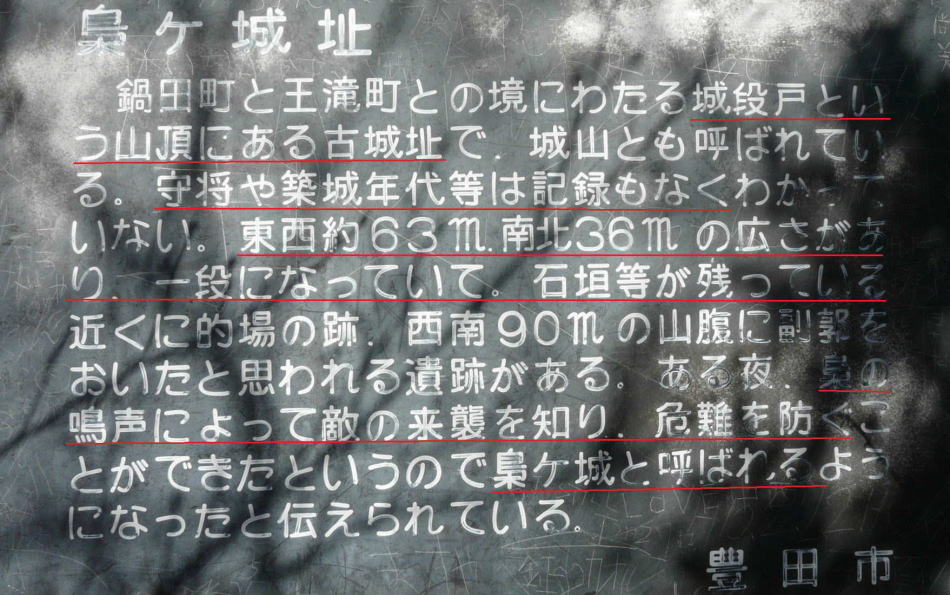 梟ヶ城址
鍋田町と王滝町との境にわたる城段戸とい
う山頂にある古城址で．城山とも呼ばれてい
る。守将や築城年代等は記録もなくわかって
いない。東西約63m.南北36mの広さがあ
り．一段になっていて。石垣等が残っている
近くに的場の跡．西南90mの山腹に副郭を
おいたと思われる遺跡がある。ある夜．梟の
鳴声によって敵の来襲を知り．危難を防ぐこ
とができたというので梟ケ城と呼ばれるよう
になったと伝えられている。
豊田市